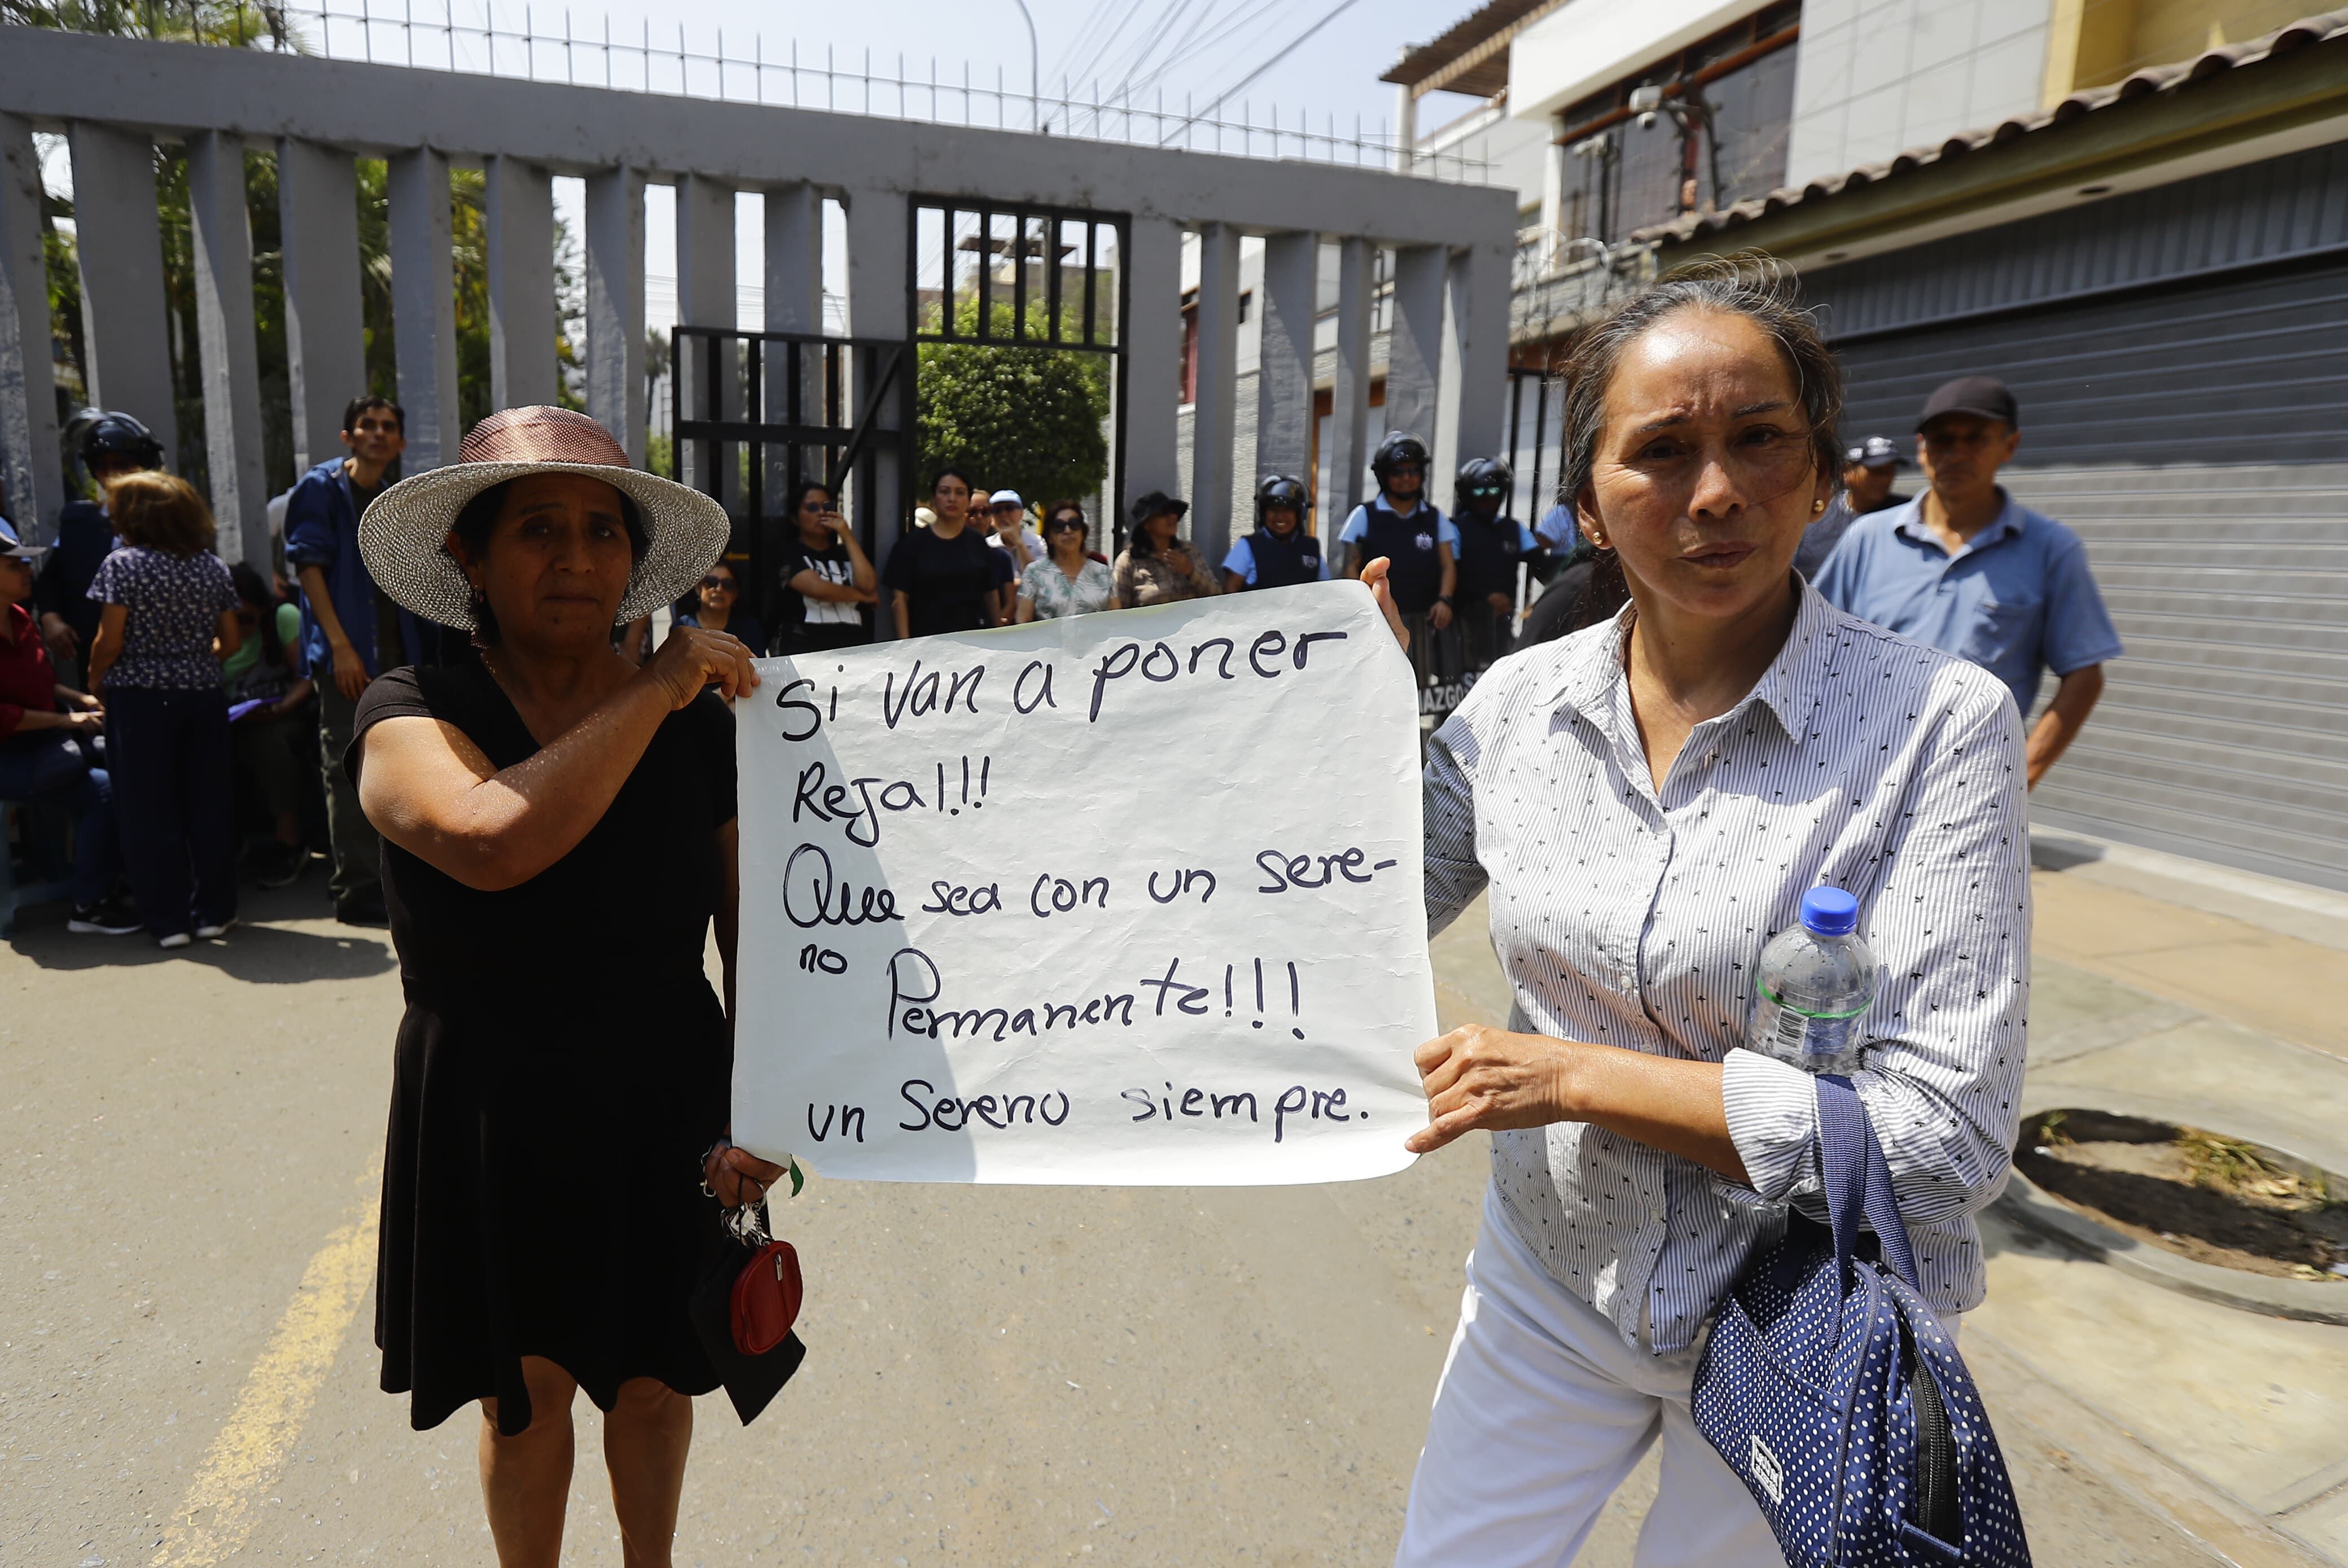 Si van a poner
Reja!!!
Que sea con un sere-
no
Permanente!!!
un Sereno siempre.